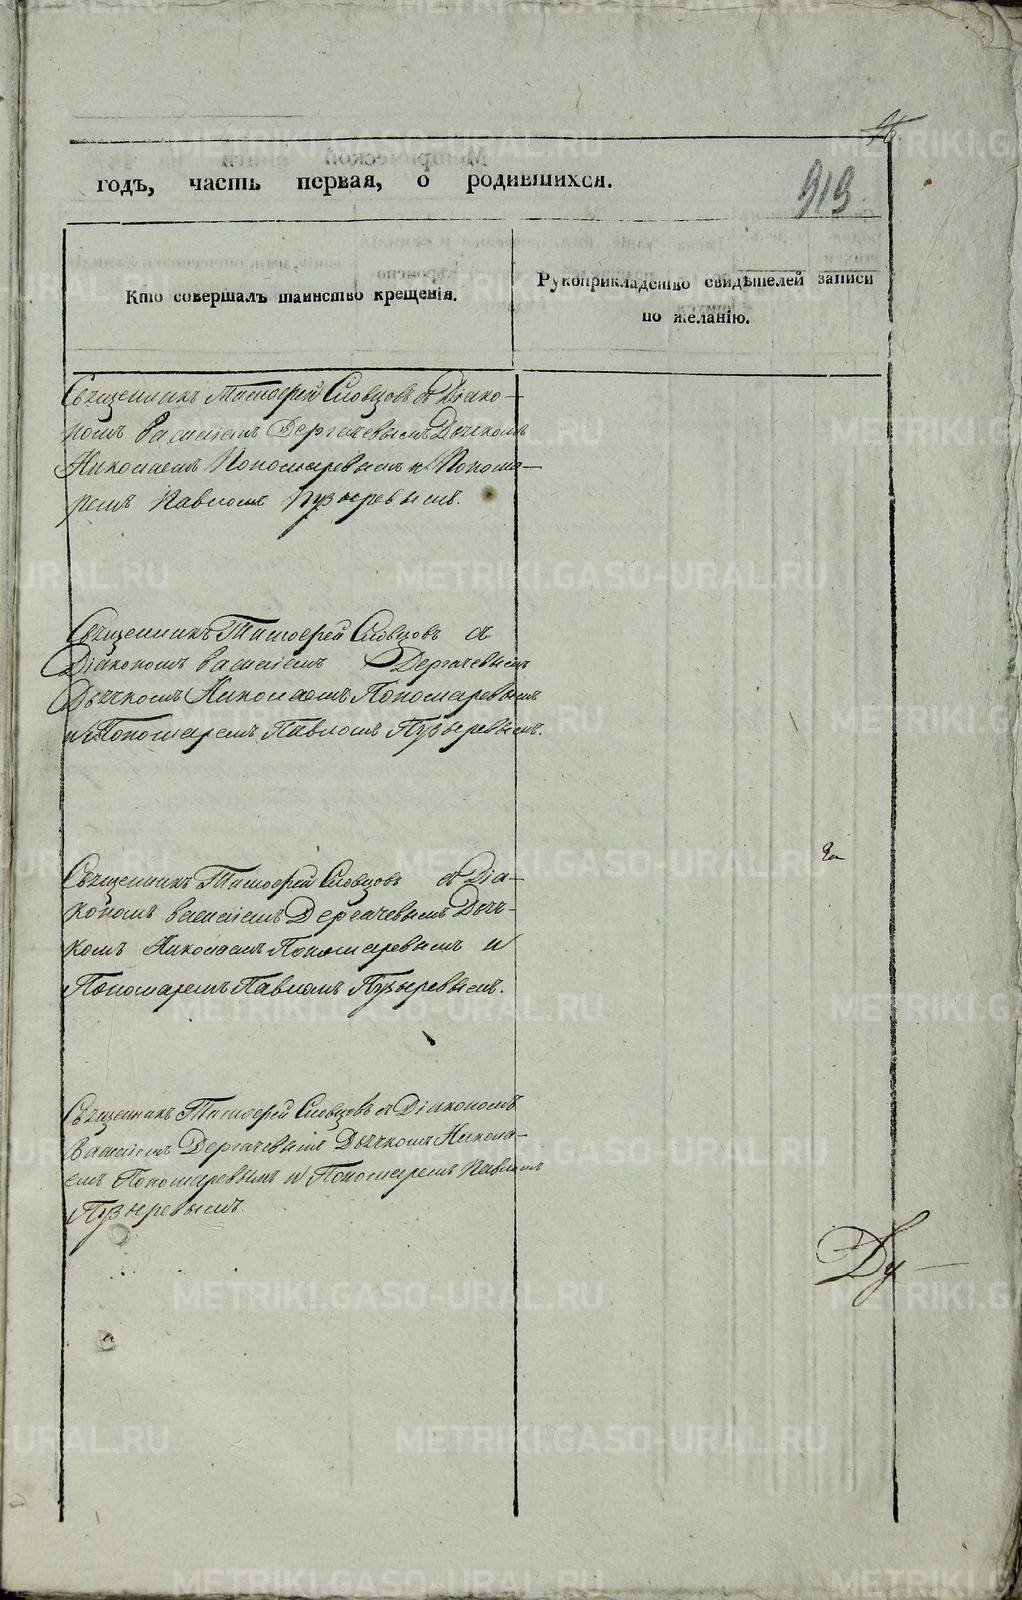 годъ, часть первая, о родившихся.
913
Кто совершалъ таинство крещенія.
Рукоприкладство свидѣтелей записи
по желанію.
Священникъ Тимофей Словцовъ съ Діако-
номъ Василіемъ Дергачевымъ Дьячкомъ
Николаемъ Пономаревымъ и Понома-
ремъ Павломъ Пузыревымъ.
Священникъ Тимофей Словцовъ съ
Діакономъ Василіемъ Дергачевымъ
Дьячкомъ Николаемъ Пономаревымъ
и Пономаремъ Павломъ Пузыревымъ.
Священникъ Тимофей Словцовъ съ Діа-
кономъ Василіемъ Дергачевымъ Дьяч-
комъ Николаемъ Пономаревымъ и
Пономаремъ Павломъ Пузыревымъ.
Священникъ Тимофей Словцовъ съ Діакономъ
Василіемъ Дергачевымъ Дьячкомъ Никола-
емъ Пономаревымъ и Пономаремъ Павломъ
Пузыревымъ.
Ду-
METRIKI.GASO-URAL.RU